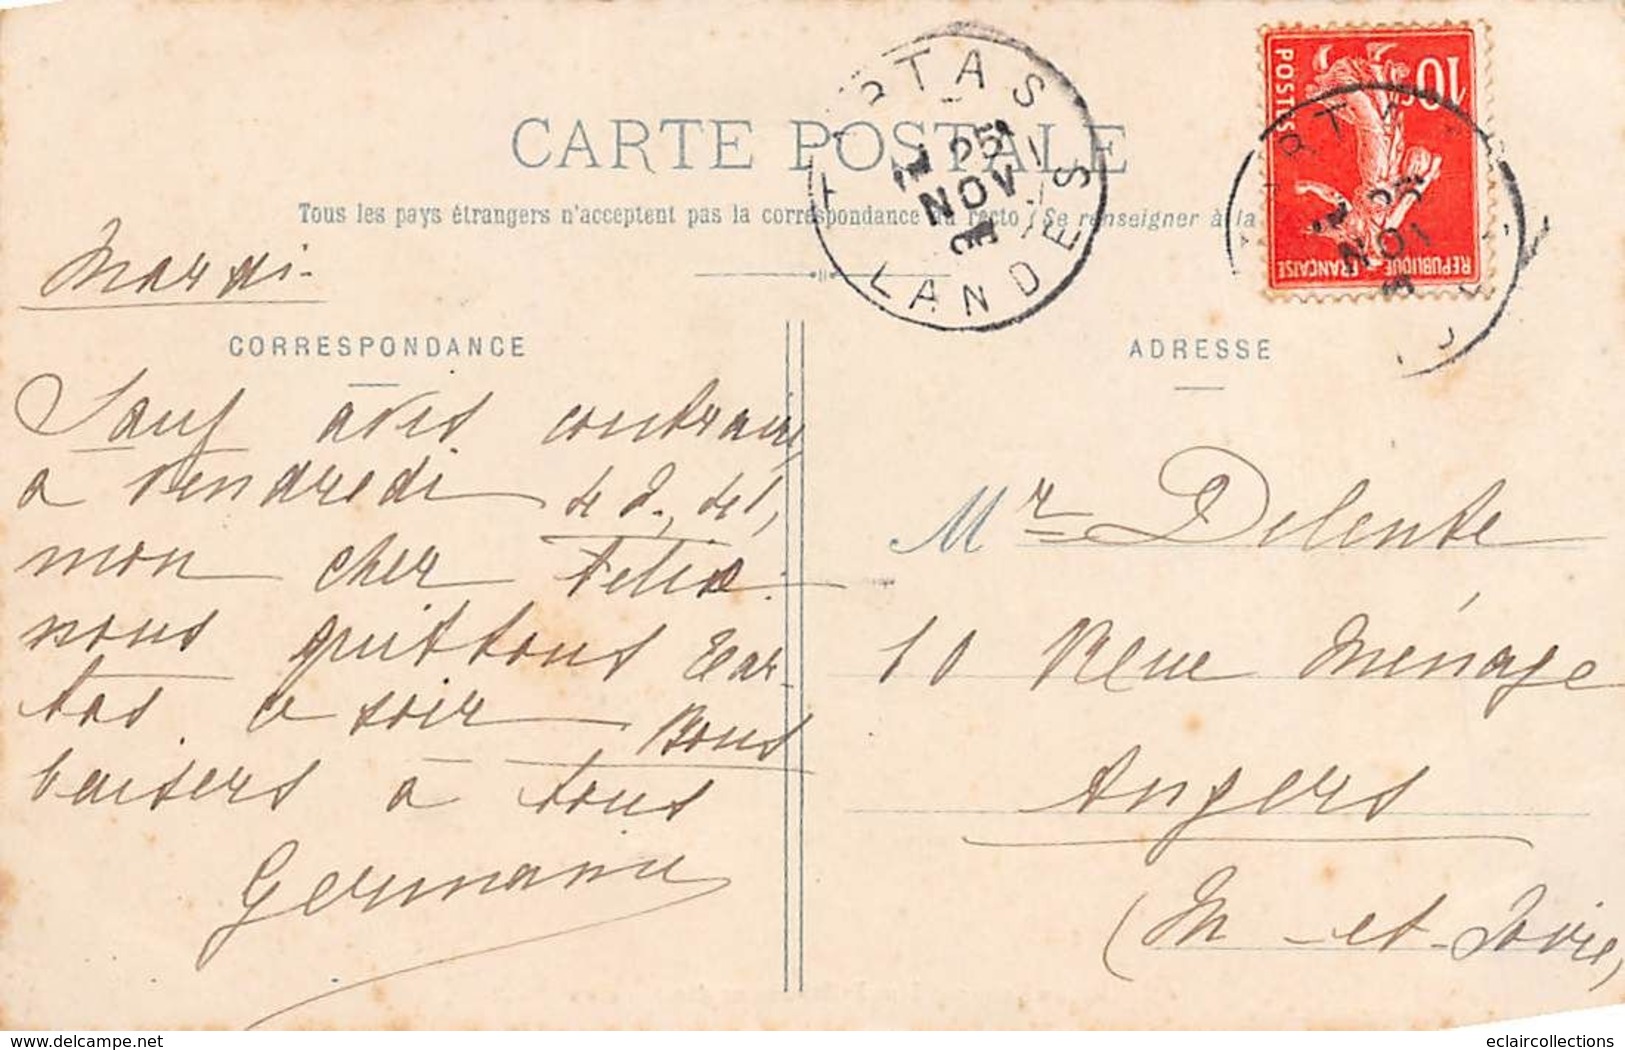 CARTE POSTALE
Tous les pays étrangers n'acceptent pas la correspondance au recto (Se renseigner à la
TARTAS
25
NOV
LANDES
10c
POSTES
REPUBLIQUE FRANÇAISE
Mardi
CORRESPONDANCE
Sauf avis contraire
a Vendredi
mon cher Felix
nous quittons Tar-
tas ce soir Bons
baisers à tous
Germaine
ADRESSE
Mr Delente
10 Rue Ménage
Angers
(M-et-Loire)
eclaircollections
www.delcampe.net